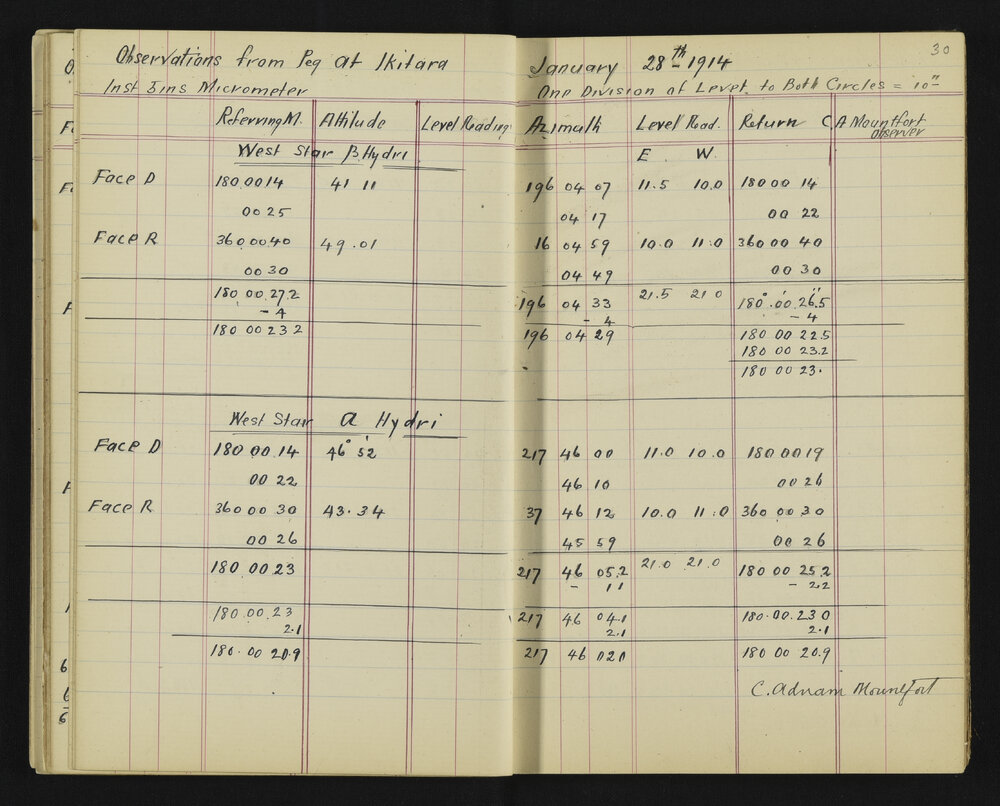 30
Observations from Peg at Ikitara January 28th 1914
Inst 5ins Micrometer One Division of Level to Both Circles = 10"
Referring M. Altitude Level Reading Azimuth Level Read. Return C. A Mountfort
observer
West Star β Hydri E W.
Face D 180 00 14 41 11 196 04 07 11.5 10.0 180 00 14
00 25 04 17 00 22
Face R 360 00 40 49.01 16 04 59 10.0 11.0 360 00 40
00 30 04 49 00 30
180 00 27.2 196 04 33 21.5 21 0 180° 00' 26.5"
- 4 - 4 - 4
180 00 23 2 196 04 29 180 00 22.5
180 00 23.2
180 00 23.
West Star α Hydri
Face D 180 00 14 46° 52' 217 46 00 11.0 10.0 180 00 19
00 22 46 10 00 26
Face R 360 00 30 43.34 37 46 12 10.0 11.0 360 00 30
00 26 45 59 00 26
180 00 23 217 46 05.2 21.0 21.0 180 00 25.2
- 1 1 - 2.2
180.00.23 217 46 04.1 180.00.23 0
2.1 2.1 2.1
180.00 20.9 217 46 020 180 00 20.9
C. Adnam Mountfort